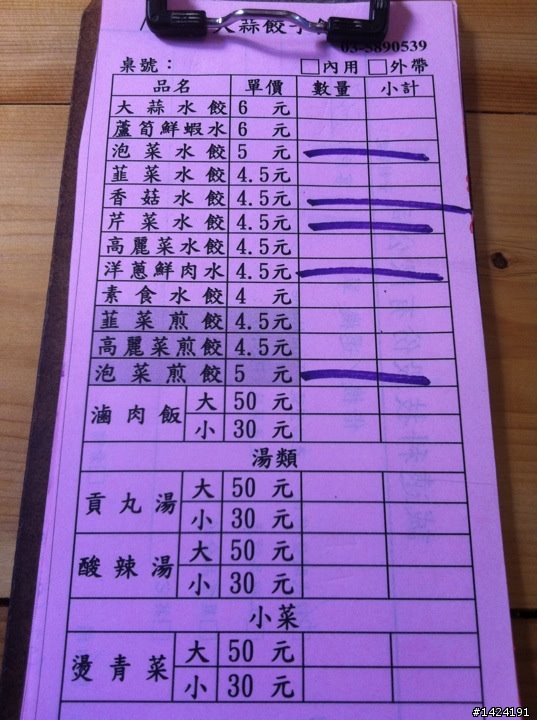 大蒜餃子
03-5890539
桌號： □內用 □外帶
品名 單價 數量 小計
大蒜水餃 6 元
蘆筍鮮蝦水 6 元
泡菜水餃 5 元
韮菜水餃 4.5元
香菇水餃 4.5元
芹菜水餃 4.5元
高麗菜水餃 4.5元
洋蔥鮮肉水 4.5元
素食水餃 4 元
韮菜煎餃 4.5元
高麗菜煎餃 4.5元
泡菜煎餃 5 元
滷肉飯 大 50 元
小 30 元
湯類
貢丸湯 大 50 元
小 30 元
酸辣湯 大 50 元
小 30 元
小菜
燙青菜 大 50 元
小 30 元
#1424191